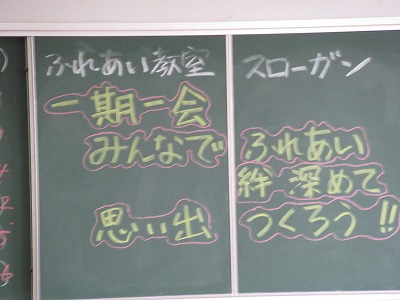 ふれあい教室 スローガン
一期一会
みんなで ふれあい
絆 深めて
思い出 つくろう!!
)
4
5
6